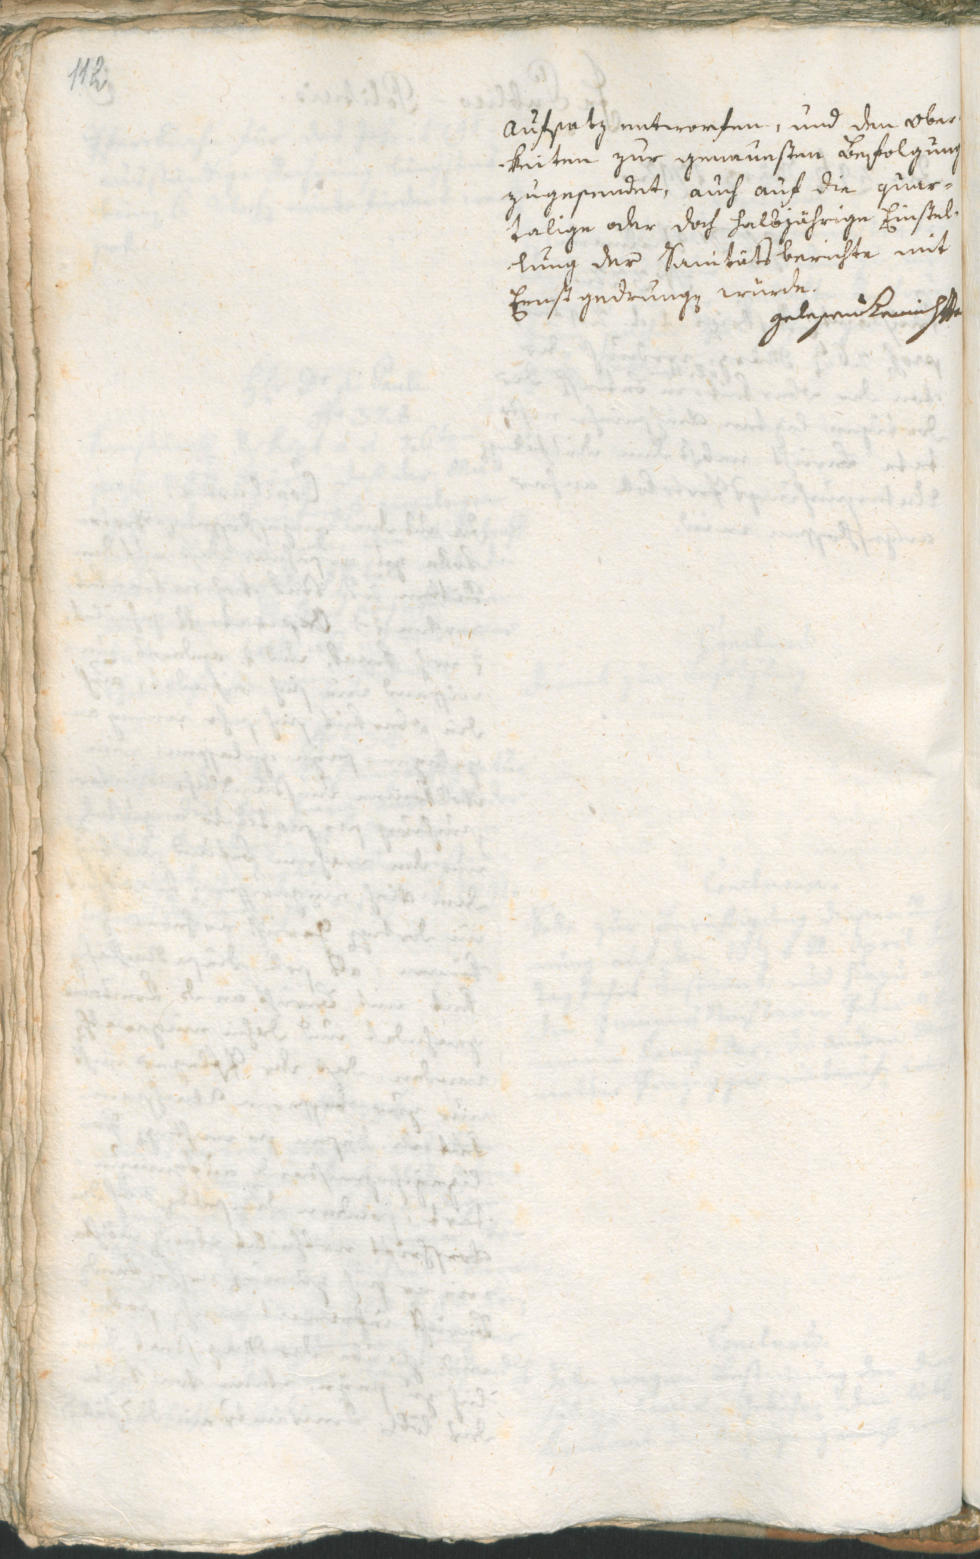 112
Aufsatz entworfen, und den Ober-
-keiten zur genauesten Befolgung
zugesendet, auch auf die quar-
talige oder doch halbjährige Einstel-
-lung der Sanitätsberichte mit
Ernst gedrungen würde.
gelesen